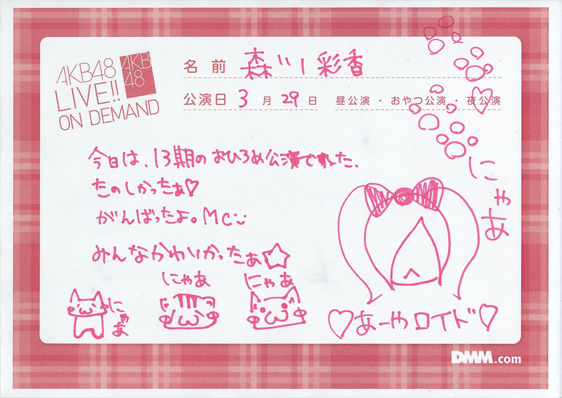 AKB48
LIVE!!
ON DEMAND
AKB
48
名前 森川彩香
公演日 3月29日 昼公演・おやつ公演・夜公演
今日は、13期のおひろめ公演でした、
たのしかったぁ♡
がんばったよ。MC
みんなかわいかったぁ☆
にゃあ
にゃあ
にゃあ
にゃあ
♡あーやロイド♡
DMM.com